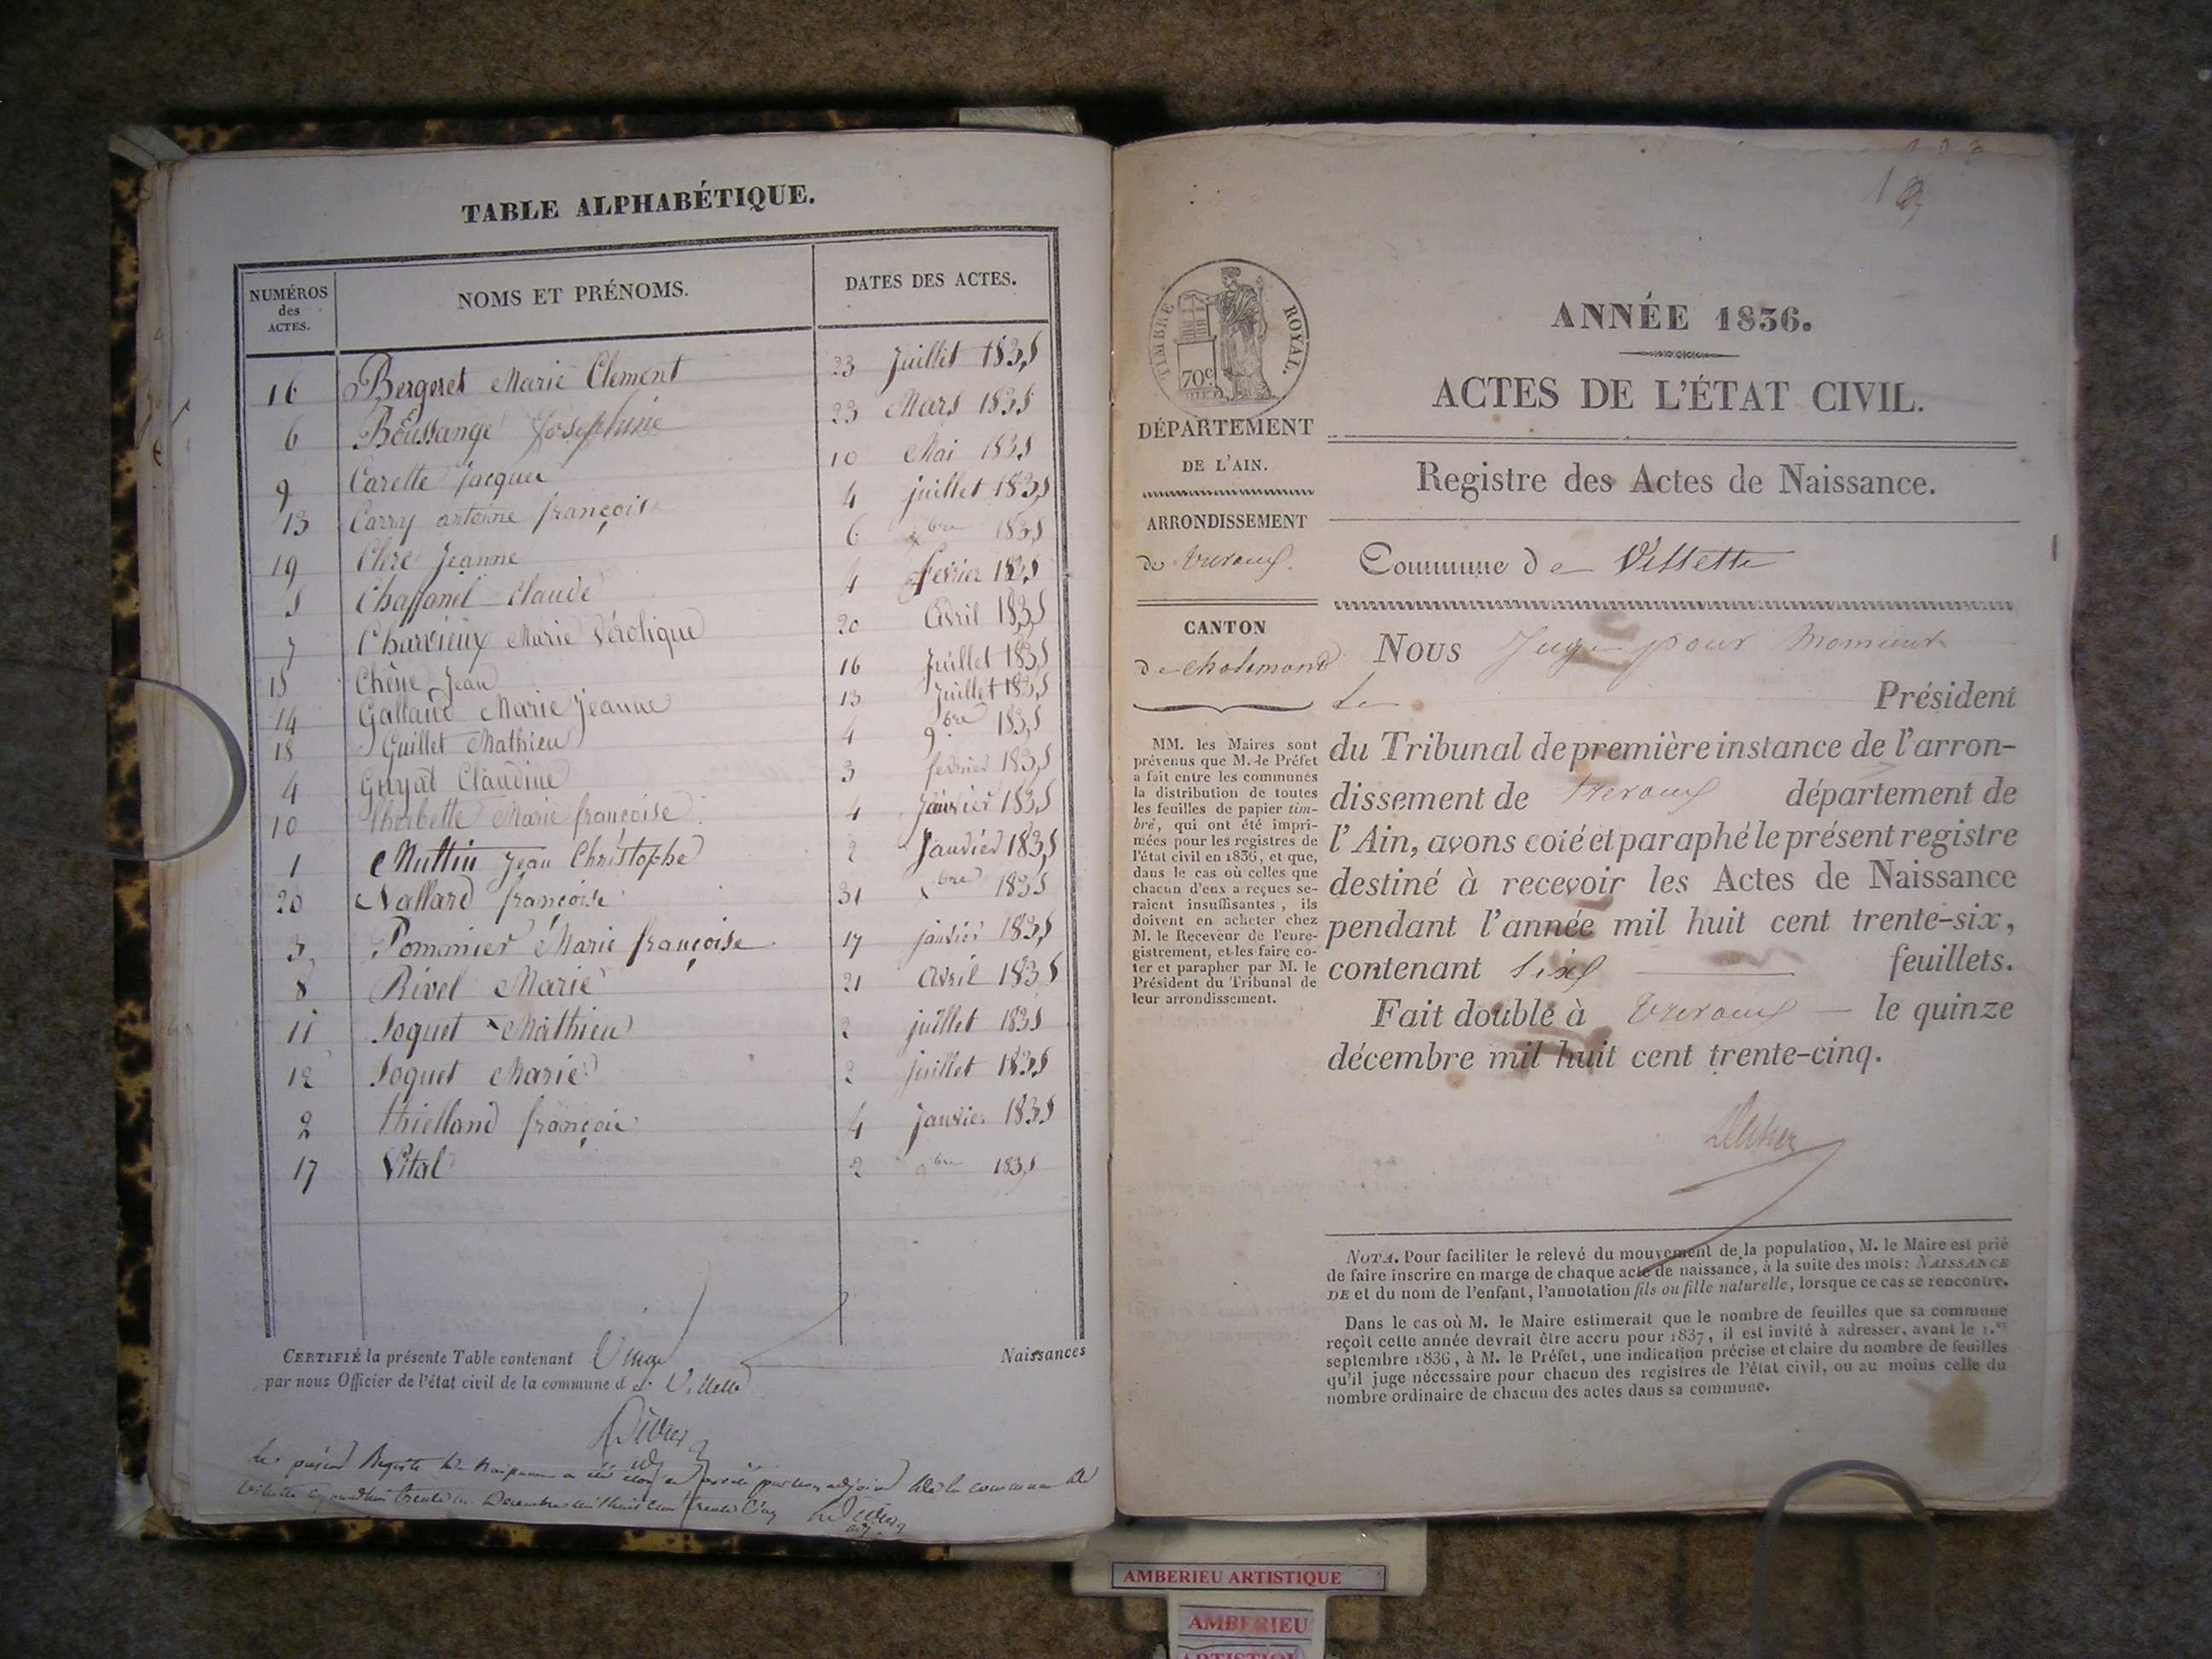 TABLE ALPHABÉTIQUE.
NUMÉROS des ACTES. NOMS ET PRÉNOMS. DATES DES ACTES.
16 Bergeret Marie Clement 23 Juillet 1835
6 Boussange Josephine 23 Mars 1835
9 Carette Jacques 10 Mai 1835
13 Carry antoine françois 4 juillet 1835
19 Clerc Jeanne 6 Xbre 1835
5 Chaffanel Claude 4 fevrier 1835
7 Charvieux Marie Vérolique 20 Avril 1835
15 Chêne Jean 16 Juillet 1835
14 Galland Marie Jeanne 13 Juillet 1835
18 Guillet Mathieu 4 9bre 1835
4 Guyat Claudine 3 fevrier 1835
10 Marie françoise 4 1835
1 Muttin Jean Christophe 2 Janvier 1835
20 Nallard françoise 31 Xbre 1835
3 Pommier Marie françoise 17 janvier 1835
8 Rivel Marie 21 Avril 1835
11 Soquet Mathieu 2 juillet 1835
12 Soquet Marie 2 juillet 1835
2 thielland françois 4 janvier 1835
17 Vital 2 8bre 1835
CERTIFIÉ la présente Table contenant Vingt Naissances
par nous Officier de l'état civil de la commune de Villette
le présent Registre de naissances a été clos et arrêté par nous adjoint de la commune de
Villette aujourdhui trente un Decembre mil huit cent trente Cinq
TIMBRE ROYAL.
70c
ANNÉE 1836.
ACTES DE L'ÉTAT CIVIL.
DÉPARTEMENT
DE L'AIN.
Registre des Actes de Naissance.
ARRONDISSEMENT
de Trevoux.
Commune de Villette
CANTON
de Chalamont
Nous Juge pour Monsieur
Le Président
du Tribunal de première instance de l'arron-
dissement de Trevoux département de
l'Ain, avons coté et paraphé le présent registre
destiné à recevoir les Actes de Naissance
pendant l'année mil huit cent trente-six,
contenant Six feuillets.
Fait double à Trevoux le quinze
décembre mil huit cent trente-cinq.
MM. les Maires sont
prévenus que M. le Préfet
a fait entre les communes
la distribution de toutes
les feuilles de papier tim-
bré, qui ont été impri-
mées pour les registres de
l'état civil en 1836, et que,
dans le cas où celles que
chacun d'eux a reçues se-
raient insuffisantes, ils
doivent en acheter chez
M. le Receveur de l'enre-
gistrement, et les faire co-
ter et parapher par M. le
Président du Tribunal de
leur arrondissement.
NOTA. Pour faciliter le relevé du mouvement de la population, M. le Maire est prié
de faire inscrire en marge de chaque acte de naissance, à la suite des mots: NAISSANCE
DE et du nom de l'enfant, l'annotation fils ou fille naturelle, lorsque ce cas se rencontre.
Dans le cas où M. le Maire estimerait que le nombre de feuilles que sa commune
reçoit cette année devrait être accru pour 1837, il est invité à adresser, avant le 1.er
septembre 1836, à M. le Préfet, une indication précise et claire du nombre de feuilles
qu'il juge nécessaire pour chacun des registres de l'état civil, ou au moins celle du
nombre ordinaire de chacun des actes dans sa commune.
AMBERIEU ARTISTIQUE
AMBERIEU
ARTISTIQUE